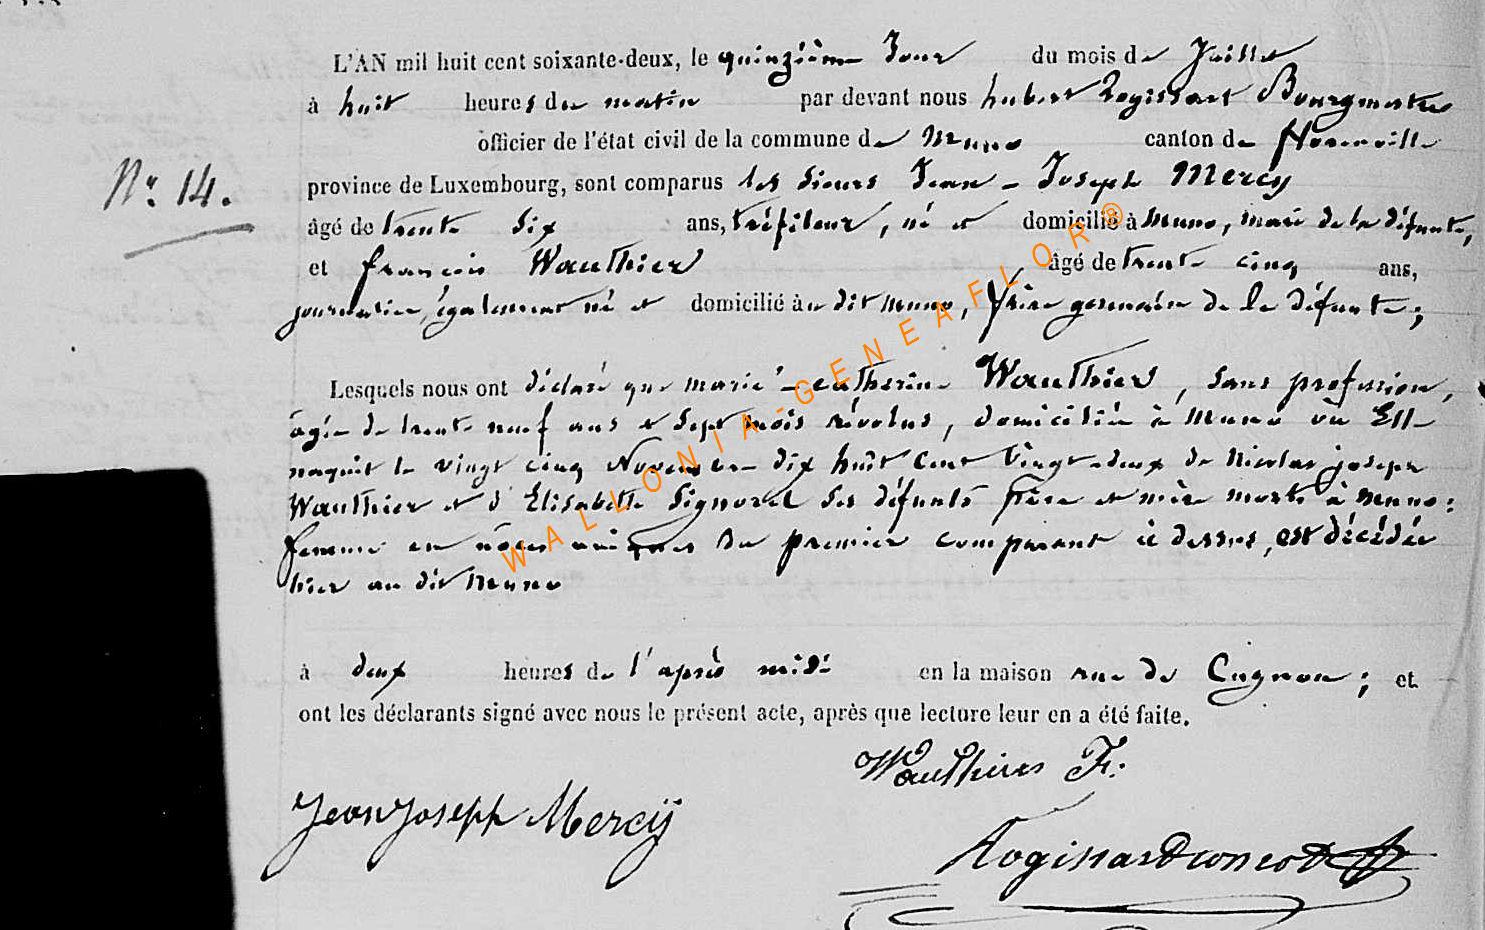 L'AN mil huit cent soixante-deux, le quinzième Jour du mois de Juillet
à huit heures du matin par devant nous hubert Rogissart Bourgmestre
officier de l'état civil de la commune de Muno canton de Florenville
N° 14. province de Luxembourg, sont comparus les Sieurs Jean-Joseph Mercy
âgé de trente six ans, tréfileur, né et domicilié à Muno, mari de la défunte,
et françois Wauthier, âgé de trente cinq ans,
journalier, également né et domicilié au dit Muno, frère germain de la défunte;
Lesquels nous ont déclaré que marie-catherine Wauthier, sans profession,
âgée de trente neuf ans et sept mois révolus, domiciliée à Muno où Elle
naquit le vingt cinq Novembre dix huit cent vingt-deux de Nicolas joseph
Wauthier et d'Elisabeth Signorel ses défunts père et mère morts à Muno:
femme en nôces uniques du premier comparant ci dessus, est décédée
hier au dit Muno
à deux heures de l'après midi en la maison rue de Cugnon; et
ont les déclarants signé avec nous le présent acte, après que lecture leur en a été faite.
Wauthier F.
Jean Joseph Mercij
Rogissart
WALLONIA-GENEAFLOR®